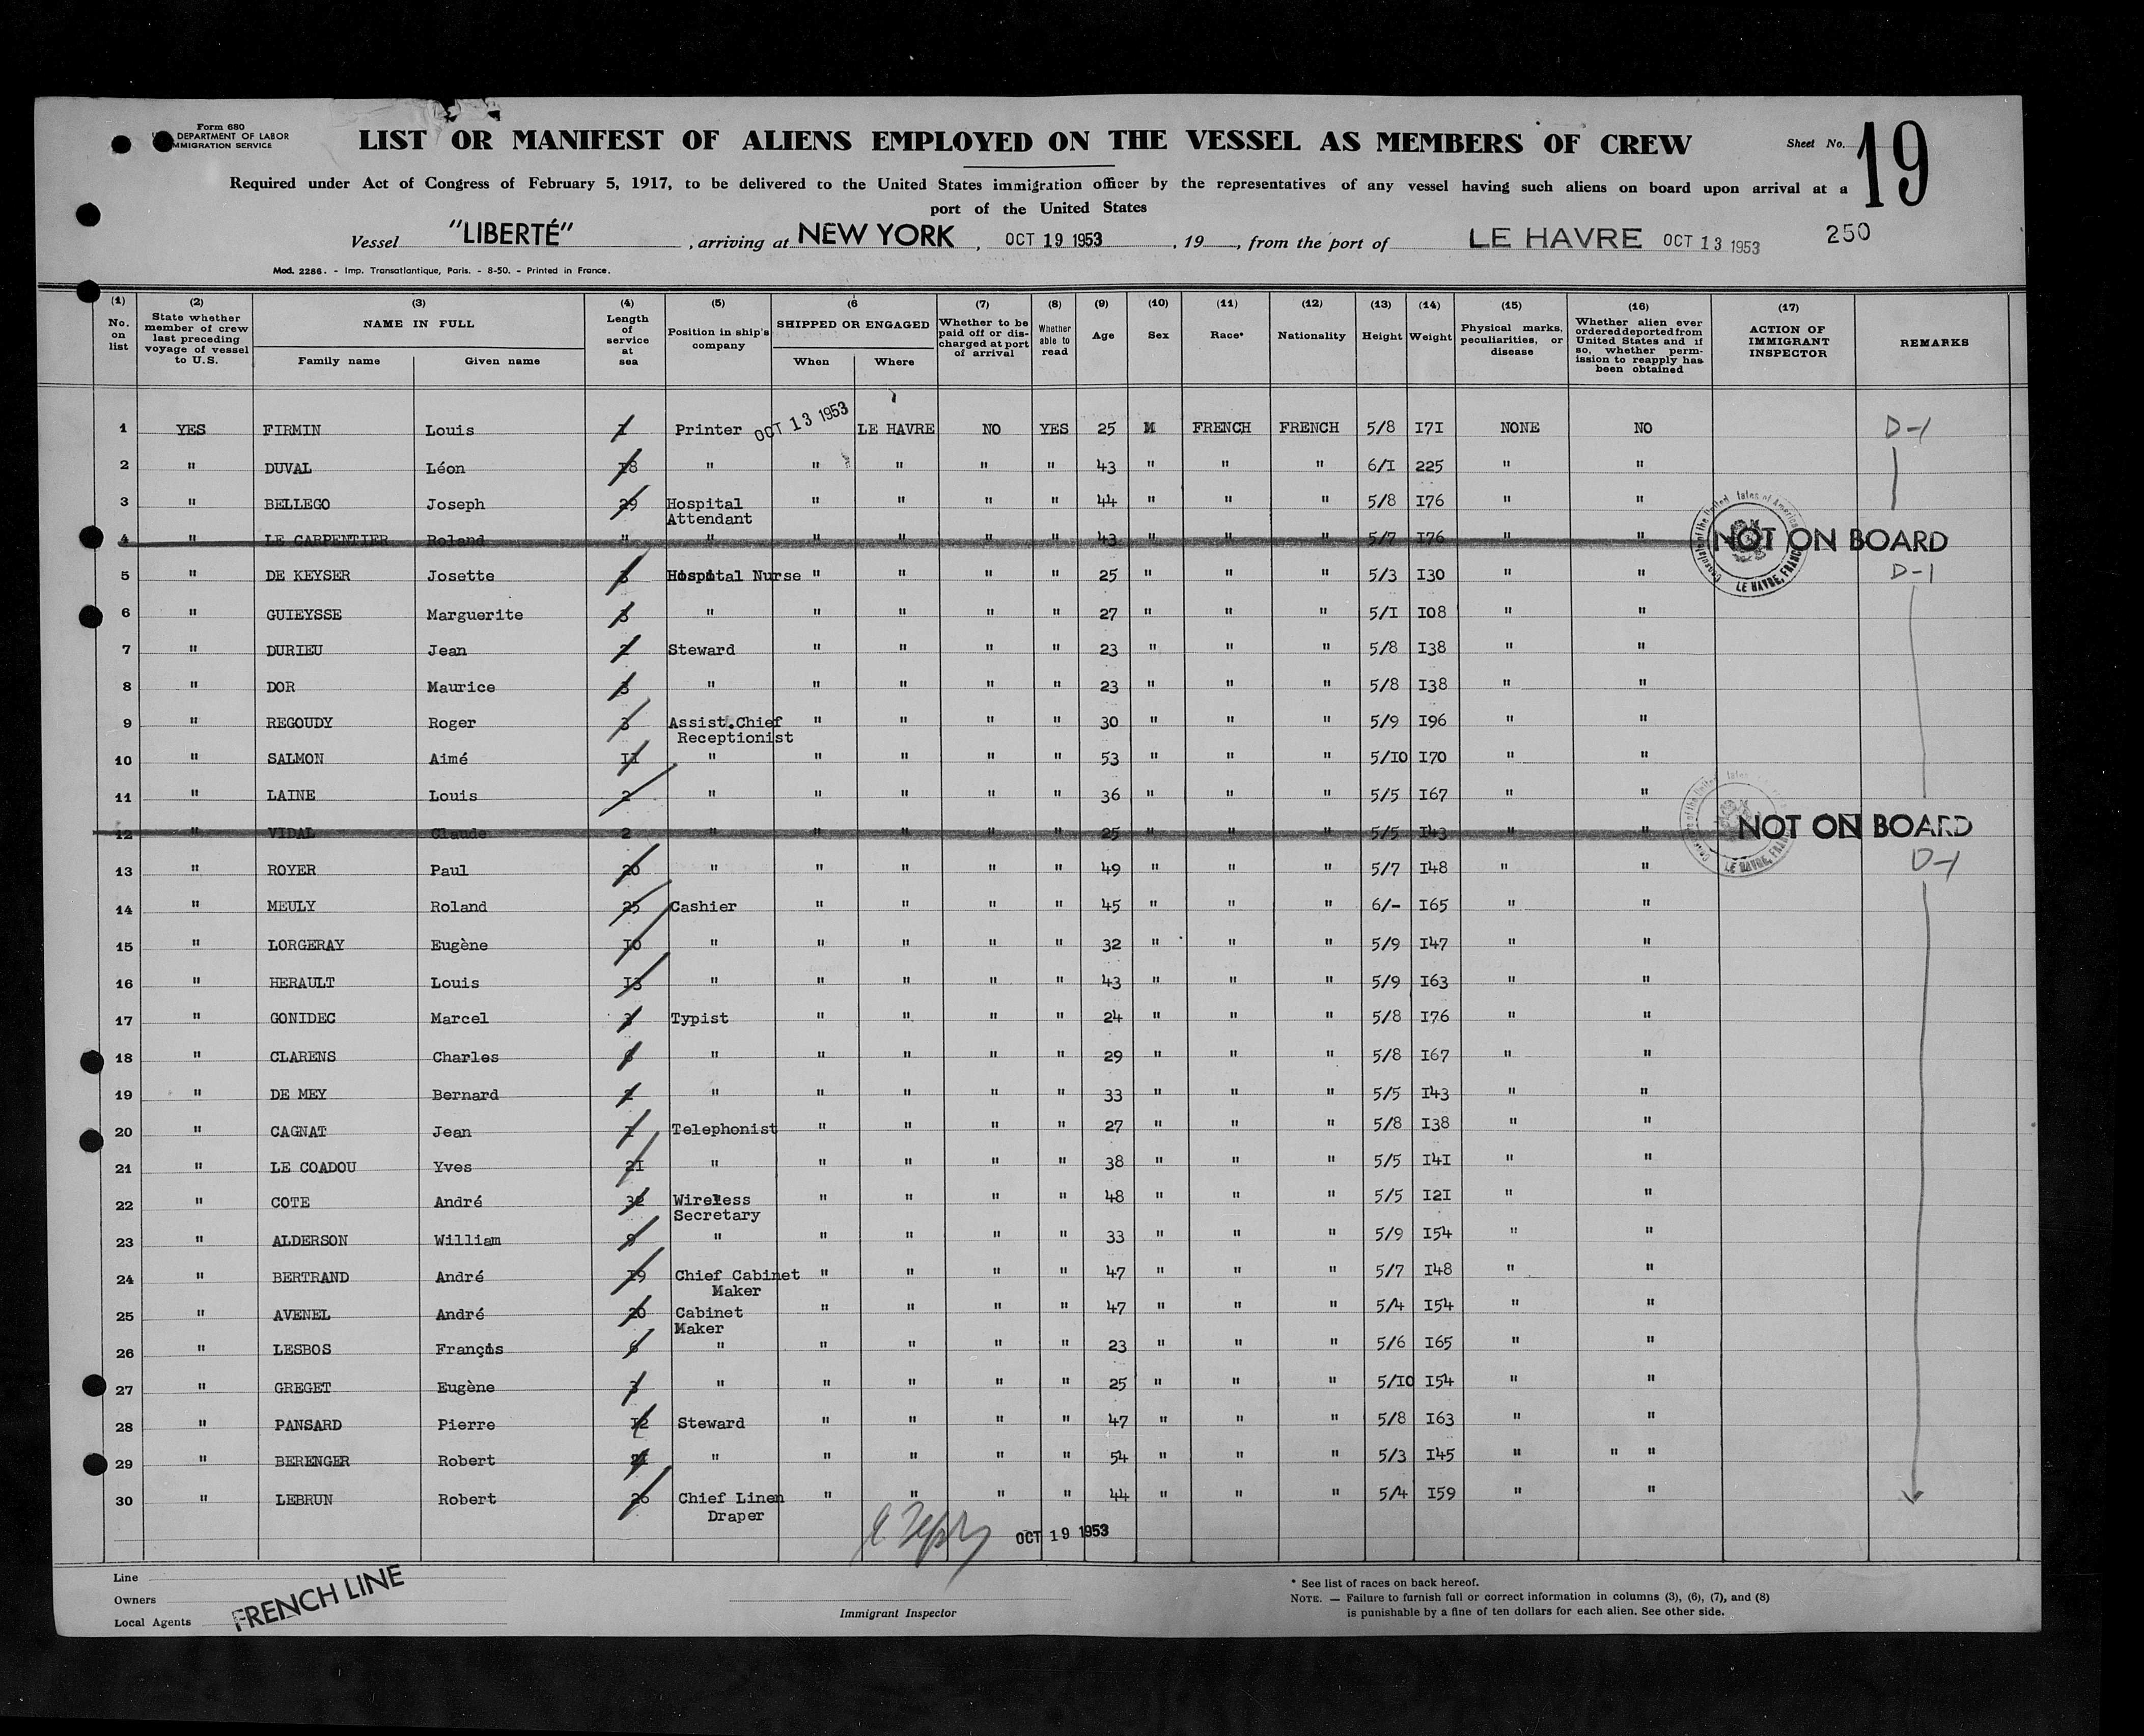 Form 680
DEPARTMENT OF LABOR
IMMIGRATION SERVICE
LIST OR MANIFEST OF ALIENS EMPLOYED ON THE VESSEL AS MEMBERS OF CREW
Sheet No. 19
Required under Act of Congress of February 5, 1917, to be delivered to the United States immigration officer by the representatives of any vessel having such aliens on board upon arrival at a
port of the United States
Vessel "LIBERTÉ", arriving at NEW YORK, OCT 19 1953, 19, from the port of LE HAVRE OCT 13 1953 250
Mod. 2286. - Imp. Transatlantique, Paris. - 8-50. - Printed in France.
(1) No. on list
(2) State whether member of crew last preceding voyage of vessel to U.S.
(3) NAME IN FULL Family name Given name
(4) Length of service at sea
(5) Position in ship's company
(6 SHIPPED OR ENGAGED When Where
(7) Whether to be paid off or discharged at port of arrival
(8) Whether able to read
(9) Age
(10) Sex
(11) Race*
(12) Nationality
(13) Height
(14) Weight
(15) Physical marks, peculiarities, or disease
(16) Whether alien ever ordered deported from United States and if so, whether permission to reapply has been obtained
(17) ACTION OF IMMIGRANT INSPECTOR
REMARKS
1 YES FIRMIN Louis 1 Printer OCT 13 1953 LE HAVRE NO YES 25 M FRENCH FRENCH 5/8 171 NONE NO D-1
2 " DUVAL Léon 18 " " " " " 43 " " " 6/1 225 " "
3 " BELLEGO Joseph 29 Hospital Attendant " " " " 44 " " " 5/8 176 " "
4 " LE CARPENTIER Roland " " " " " " 43 " " " 5/7 176 " " NOT ON BOARD
LE HAVRE, FRANCE
5 " DE KEYSER Josette 3 Hospital Nurse " " " " 25 " " " 5/3 130 " " D-1
6 " GUIEYSSE Marguerite 3 " " " " " 27 " " " 5/1 108 " "
7 " DURIEU Jean 2 Steward " " " " 23 " " " 5/8 138 " "
8 " DOR Maurice 3 " " " " " 23 " " " 5/8 138 " "
9 " REGOUDY Roger 3 Assist.Chief Receptionist " " " " 30 " " " 5/9 196 " "
10 " SALMON Aimé 11 " " " " " 53 " " " 5/10 170 " "
11 " LAINE Louis 2 " " " " " 36 " " " 5/5 167 " "
12 " VIDAL Claude 2 " " " " " 25 " " " 5/5 143 " " NOT ON BOARD
LE HAVRE, FRANCE
13 " ROYER Paul 20 " " " " " 49 " " " 5/7 148 " " D-1
14 " MEULY Roland 25 Cashier " " " " 45 " " " 6/- 165 " "
15 " LORGERAY Eugène 10 " " " " " 32 " " " 5/9 147 " "
16 " HERAULT Louis 13 " " " " " 43 " " " 5/9 163 " "
17 " GONIDEC Marcel 3 Typist " " " " 24 " " " 5/8 176 " "
18 " CLARENS Charles " " " " " 29 " " " 5/8 167 " "
19 " DE MEY Bernard 2 " " " " " 33 " " " 5/5 143 " "
20 " CAGNAT Jean 1 Telephonist " " " " 27 " " " 5/8 138 " "
21 " LE COADOU Yves 21 " " " " " 38 " " " 5/5 141 " "
22 " COTE André 32 Wireless Secretary " " " " 48 " " " 5/5 121 " "
23 " ALDERSON William 9 " " " " " 33 " " " 5/9 154 " "
24 " BERTRAND André 19 Chief Cabinet Maker " " " " 47 " " " 5/7 148 " "
25 " AVENEL André 20 Cabinet Maker " " " " 47 " " " 5/4 154 " "
26 " LESBOS François 6 " " " " " 23 " " " 5/6 165 " "
27 " GREGET Eugène 3 " " " " " 25 " " " 5/10 154 " "
28 " PANSARD Pierre 12 Steward " " " " 47 " " " 5/8 163 " "
29 " BERENGER Robert 21 " " " " " 54 " " " 5/3 145 " " "
30 " LEBRUN Robert 26 Chief Linen Draper " " " " 44 " " " 5/4 159 " "
OCT 19 1953
Line
Owners
Local Agents
FRENCH LINE
Immigrant Inspector
* See list of races on back hereof.
NOTE. — Failure to furnish full or correct information in columns (3), (6), (7), and (8)
is punishable by a fine of ten dollars for each alien. See other side.